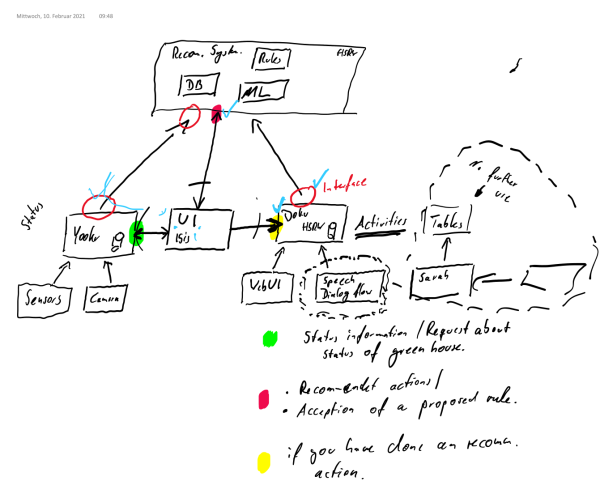 Mittwoch, 10. Februar 2021 09:48
Recom. System.
Rules
HSRW
DB
ML
Interface
n. further
use
Status
UI
Isis
Doku
HSRW
Activities
Tables
Sensors
Camera
VibUI
Speech
Dialog flow
Sarah
Status information / Request about
status of green house.
• Recommendet actions /
• Acception of a proposed rule.
if you have done an recomm.
action.